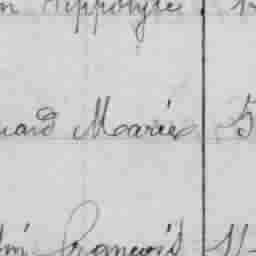 n Hippolyte 1
uard Mariée 5
lin François 11